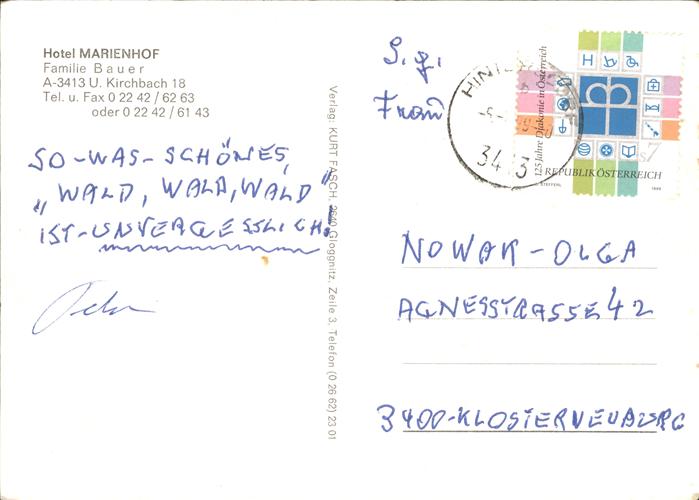 Hotel MARIENHOF
Familie Bauer
A-3413 U. Kirchbach 18
Tel. u. Fax 0 22 42 / 62 63
oder 0 22 42 / 61 43
SO-WAS-SCHÖNES,
„WALD, WALD, WALD"
IST-UNVERGESSLICH.
Verlag: KURT FASCH, 2640 Gloggnitz, Zeile 3, Telefon (0 26 62) 23 01
S. g.
Frau
3413
125 Jahre Diakonie in Österreich
S7
REPUBLIK ÖSTERREICH
1999
NOWAK-OLGA
AGNESSTRASSE 42
3400-KLOSTERNEUBURG